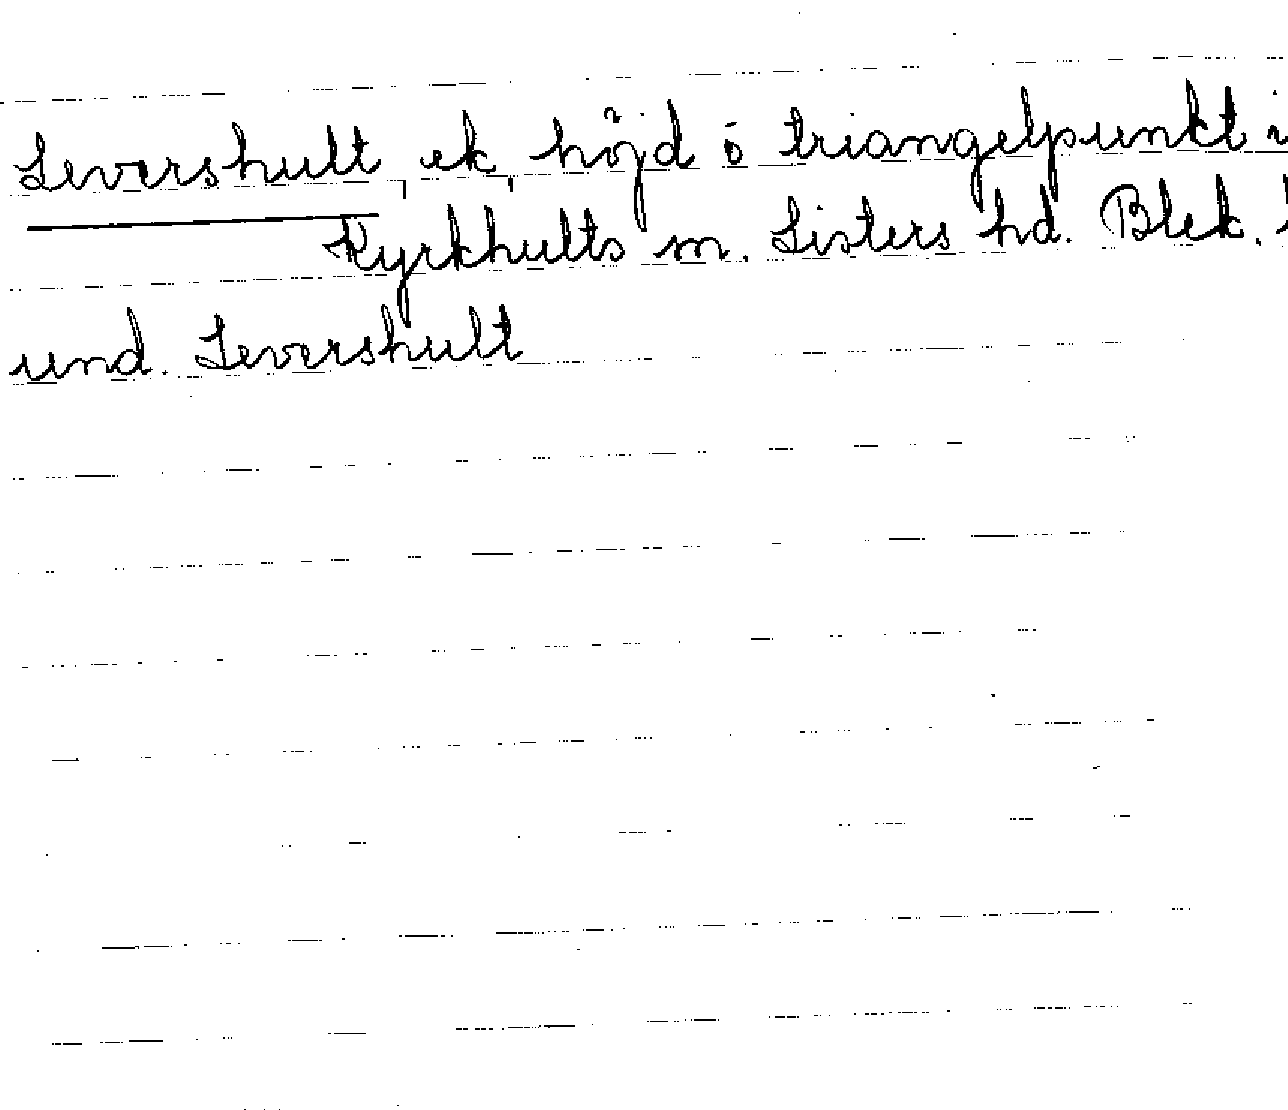 Levershult, ek, höjd ö triangelpunkt i
Kyrkhults sn. Listers hd. Blek.
und. Levershult